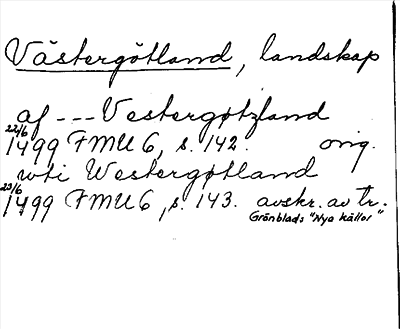 Västergötland, landskap
af --- Vestergøtzland
22/6 1499 FMU 6, s. 142. orig.
wti Westergøtland
23/6 1499 FMU 6, s. 143. avskr. av tr.
Grönblads "Nya källor"